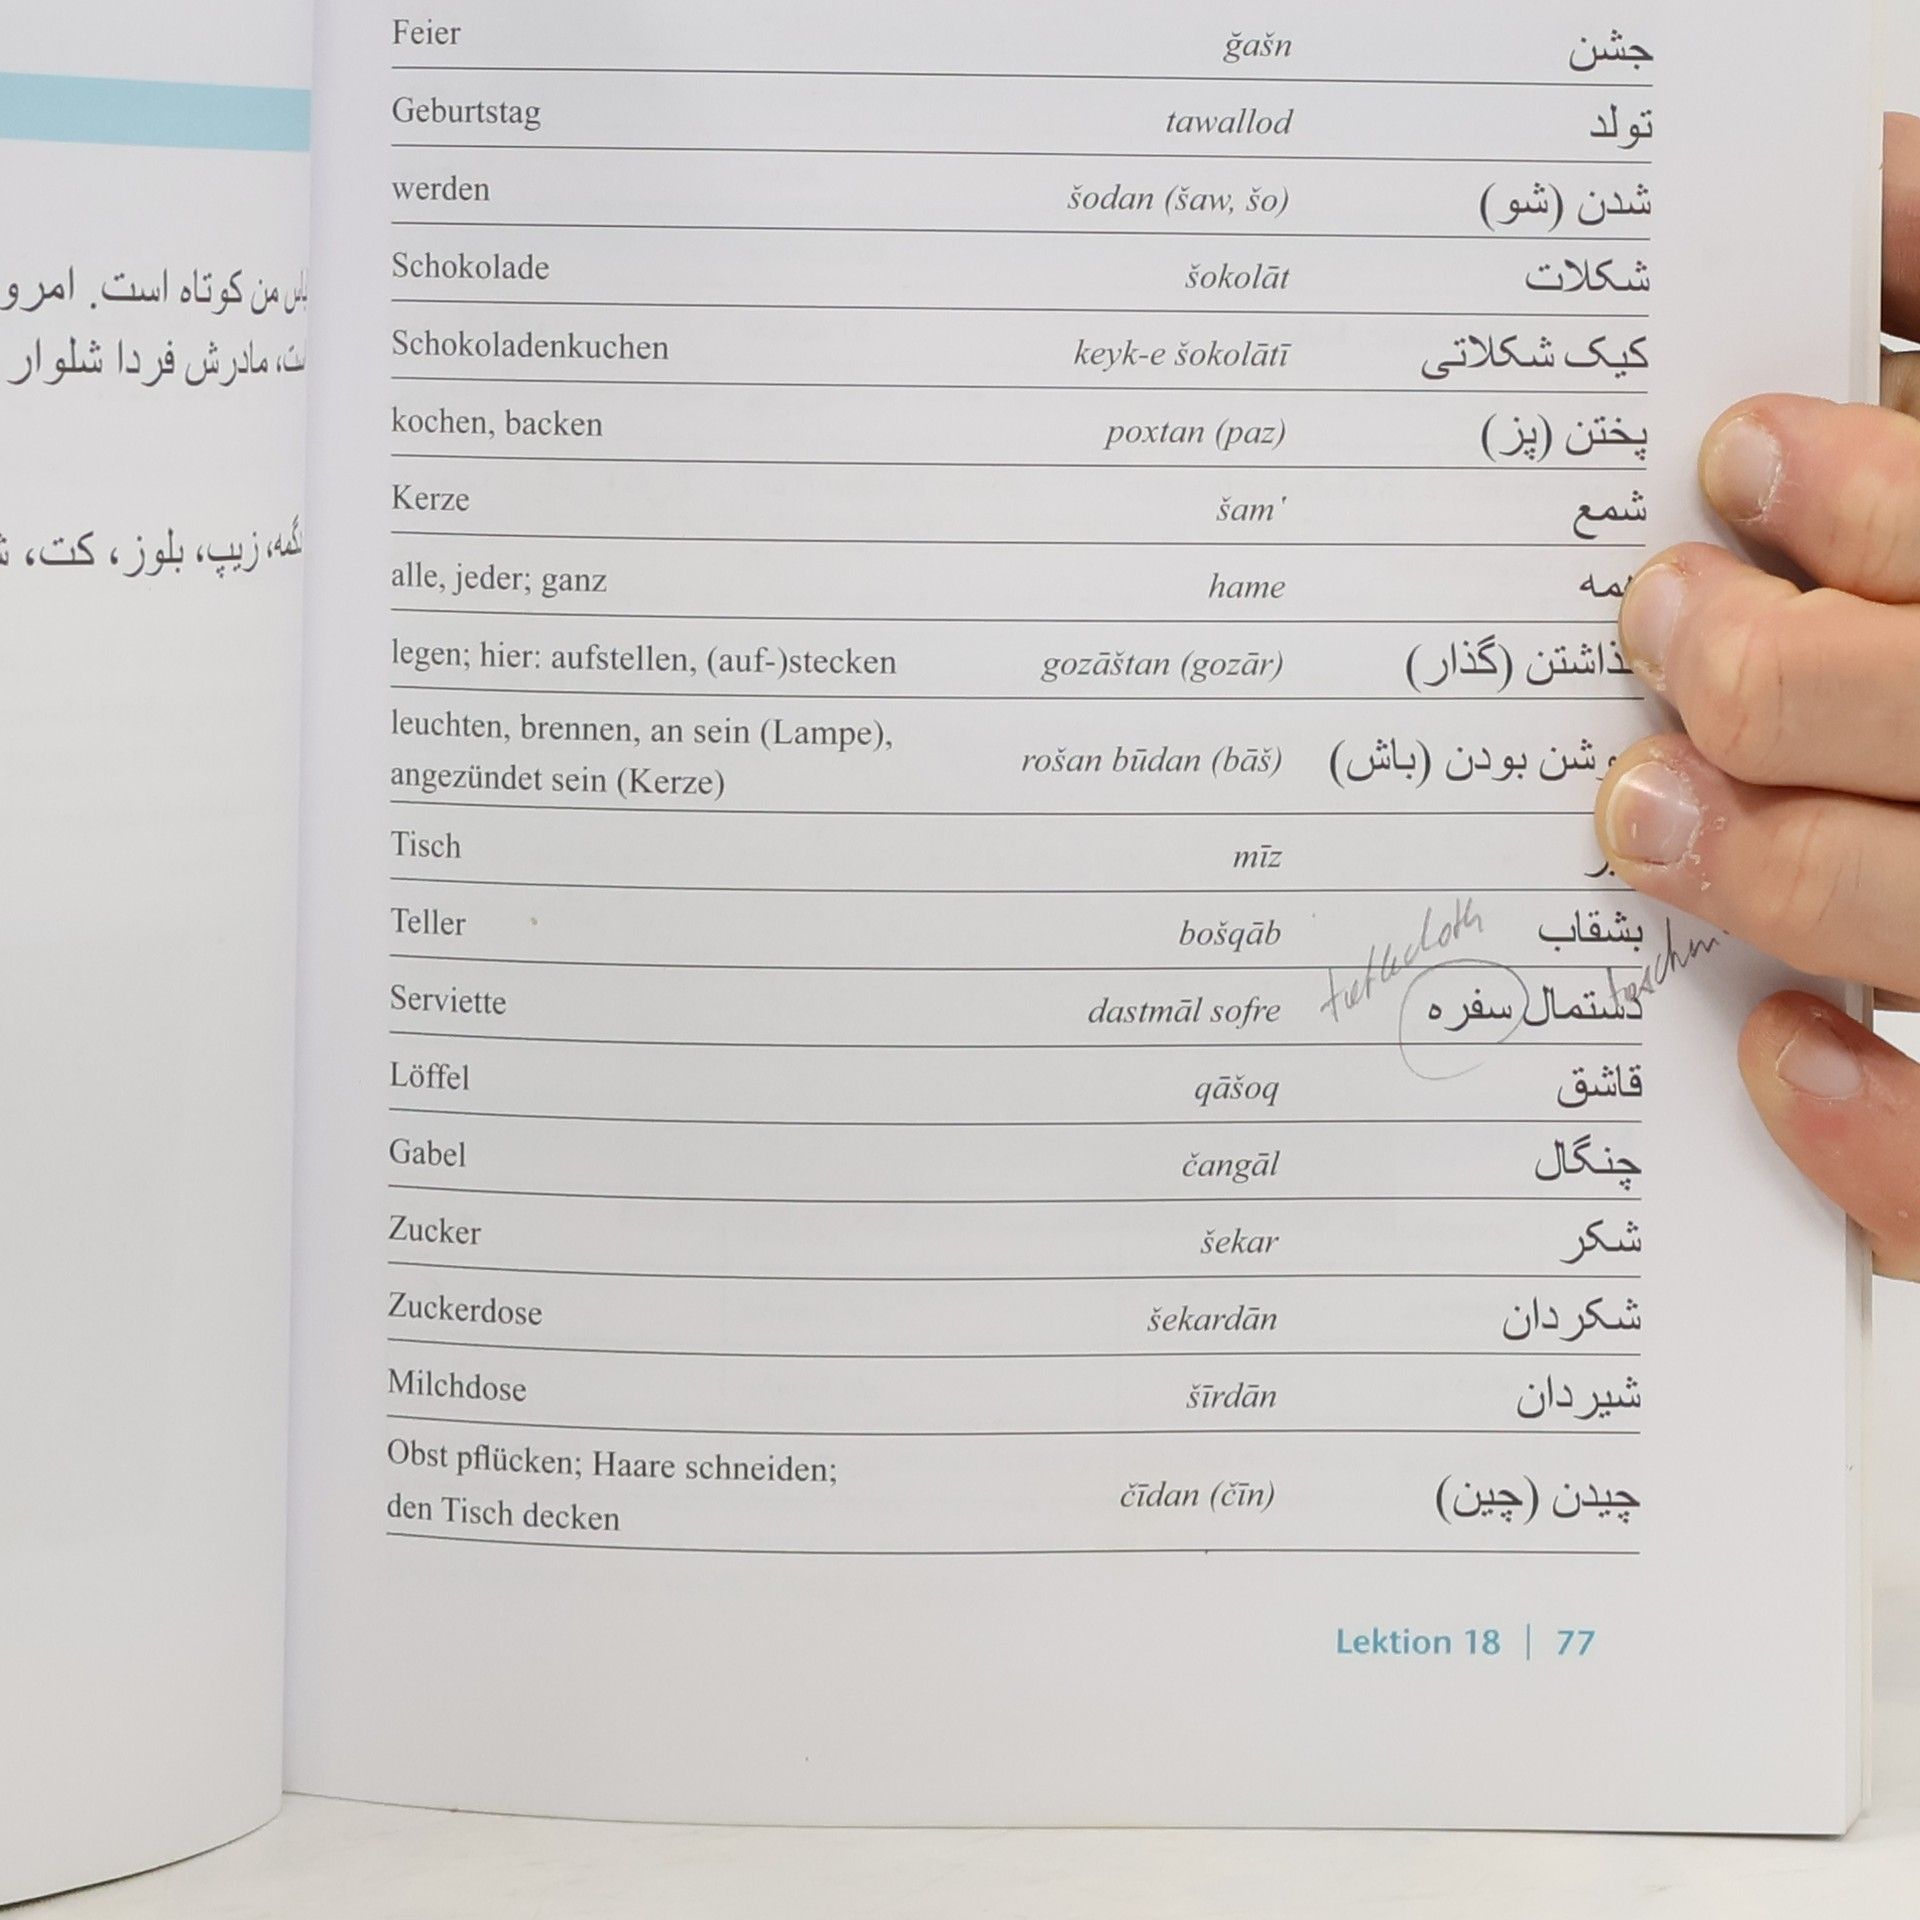 من کوتاه است. امرو
مادرش فردا شلوار
زیپ، بلوز، کت،
Feier ğašn جشن
Geburtstag tawallod تولد
werden šodan (šaw, šo) شدن (شو)
Schokolade šokolāt شکلات
Schokoladenkuchen keyk-e šokolātī کیک شکلاتی
kochen, backen poxtan (paz) پختن (پز)
Kerze šam' شمع
alle, jeder; ganz hame
legen; hier: aufstellen, (auf-)stecken gozāštan (gozār) (گذار)
leuchten, brennen, an sein (Lampe),
angezündet sein (Kerze) rošan būdan (bāš) بودن (باش)
Tisch mīz
Teller bošqāb بشقاب
Serviette dastmāl sofre دستمال سفره
Löffel qāšoq قاشق
Gabel čangāl چنگال
Zucker šekar شکر
Zuckerdose šekardān شکردان
Milchdose šīrdān شیردان
Obst pflücken; Haare schneiden;
den Tisch decken čīdan (čīn) چیدن (چین)
Lektion 18 | 77